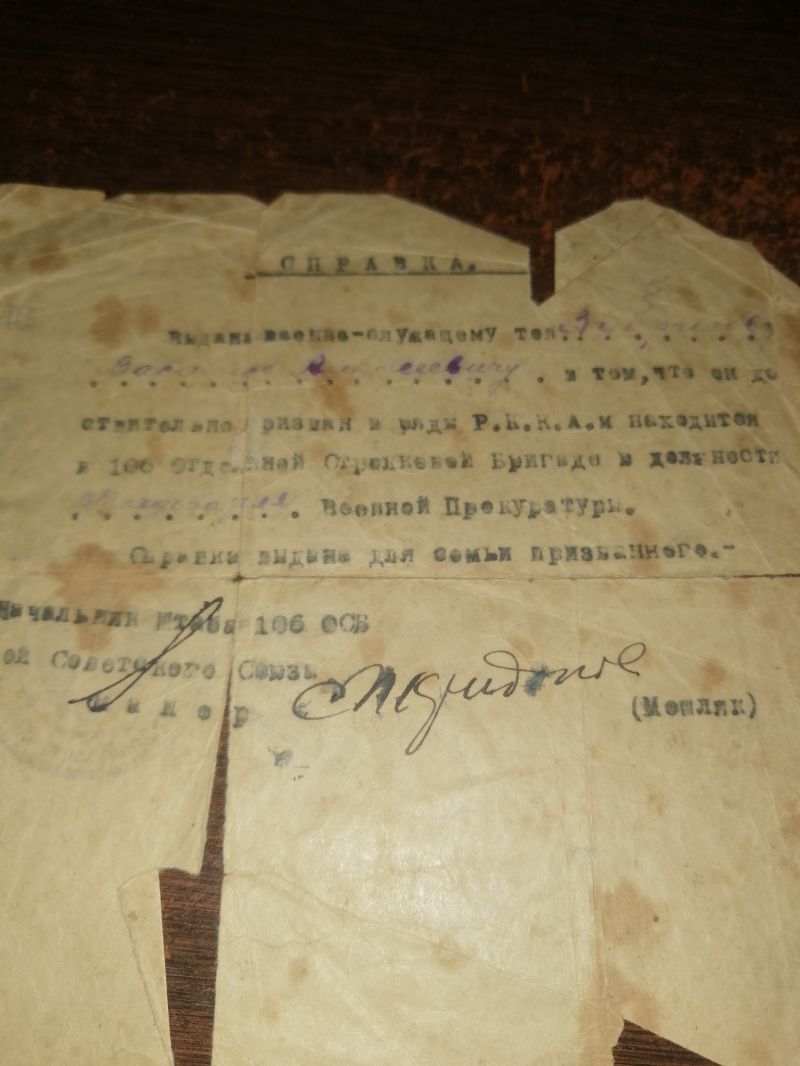 СПРАВКА.
Выдана военно-служащему тов.
Алексеевичу в том, что он де
ствительно призван в ряды Р.К.К.А. и находится
в 106 Отдельной Стрелковой Бригаде в должности
Военной Прокуратуры.
Справка выдана для семьи призванного.-
Начальник Штаба 106 ОСБ
ой Советского Союза
(Мошляк)